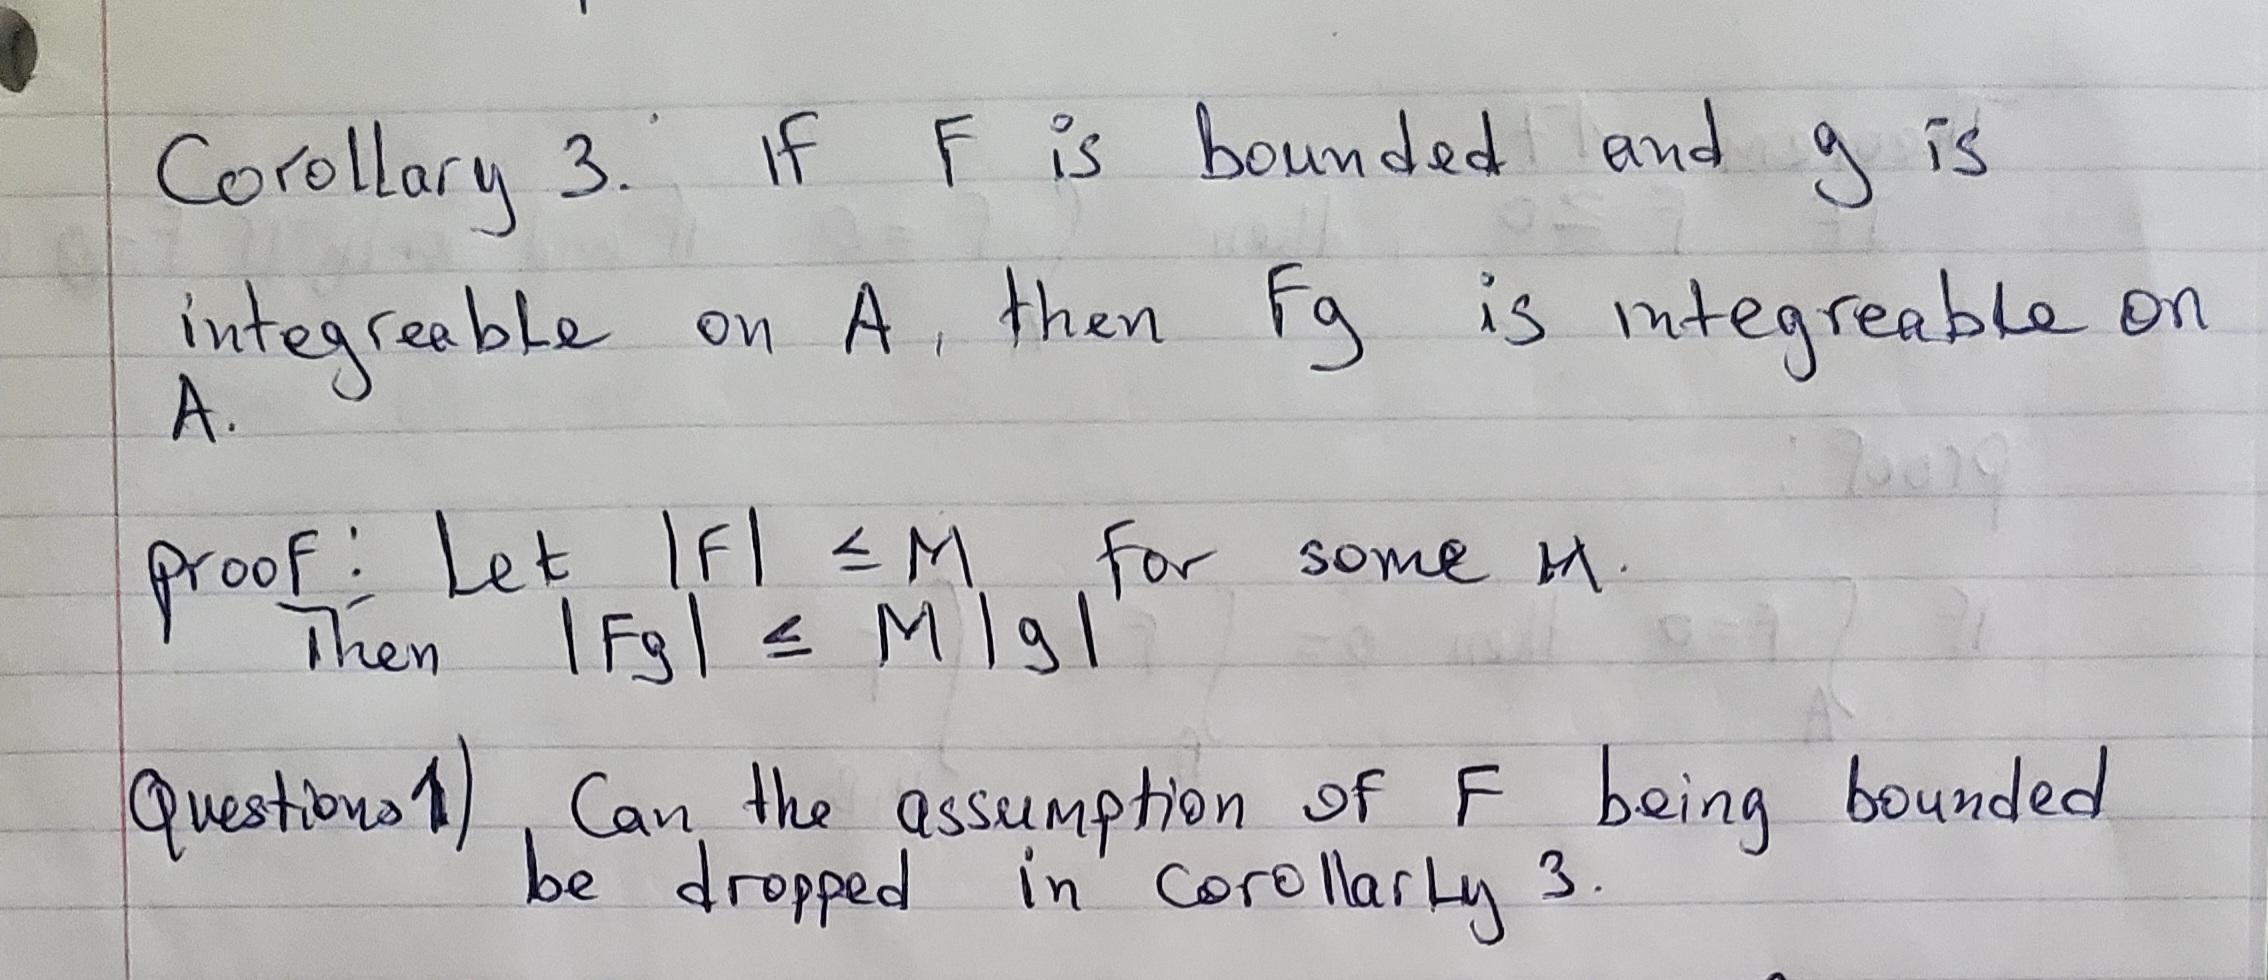 Corollary 3. If F is bounded and g is
integreable on A, then Fg is integreable on
A.
proof: Let |F| ≤ M For some M.
Then |Fg| ≤ M|g|
Questions 1) Can the assumption of F being bounded
be dropped in CorollarLy 3.